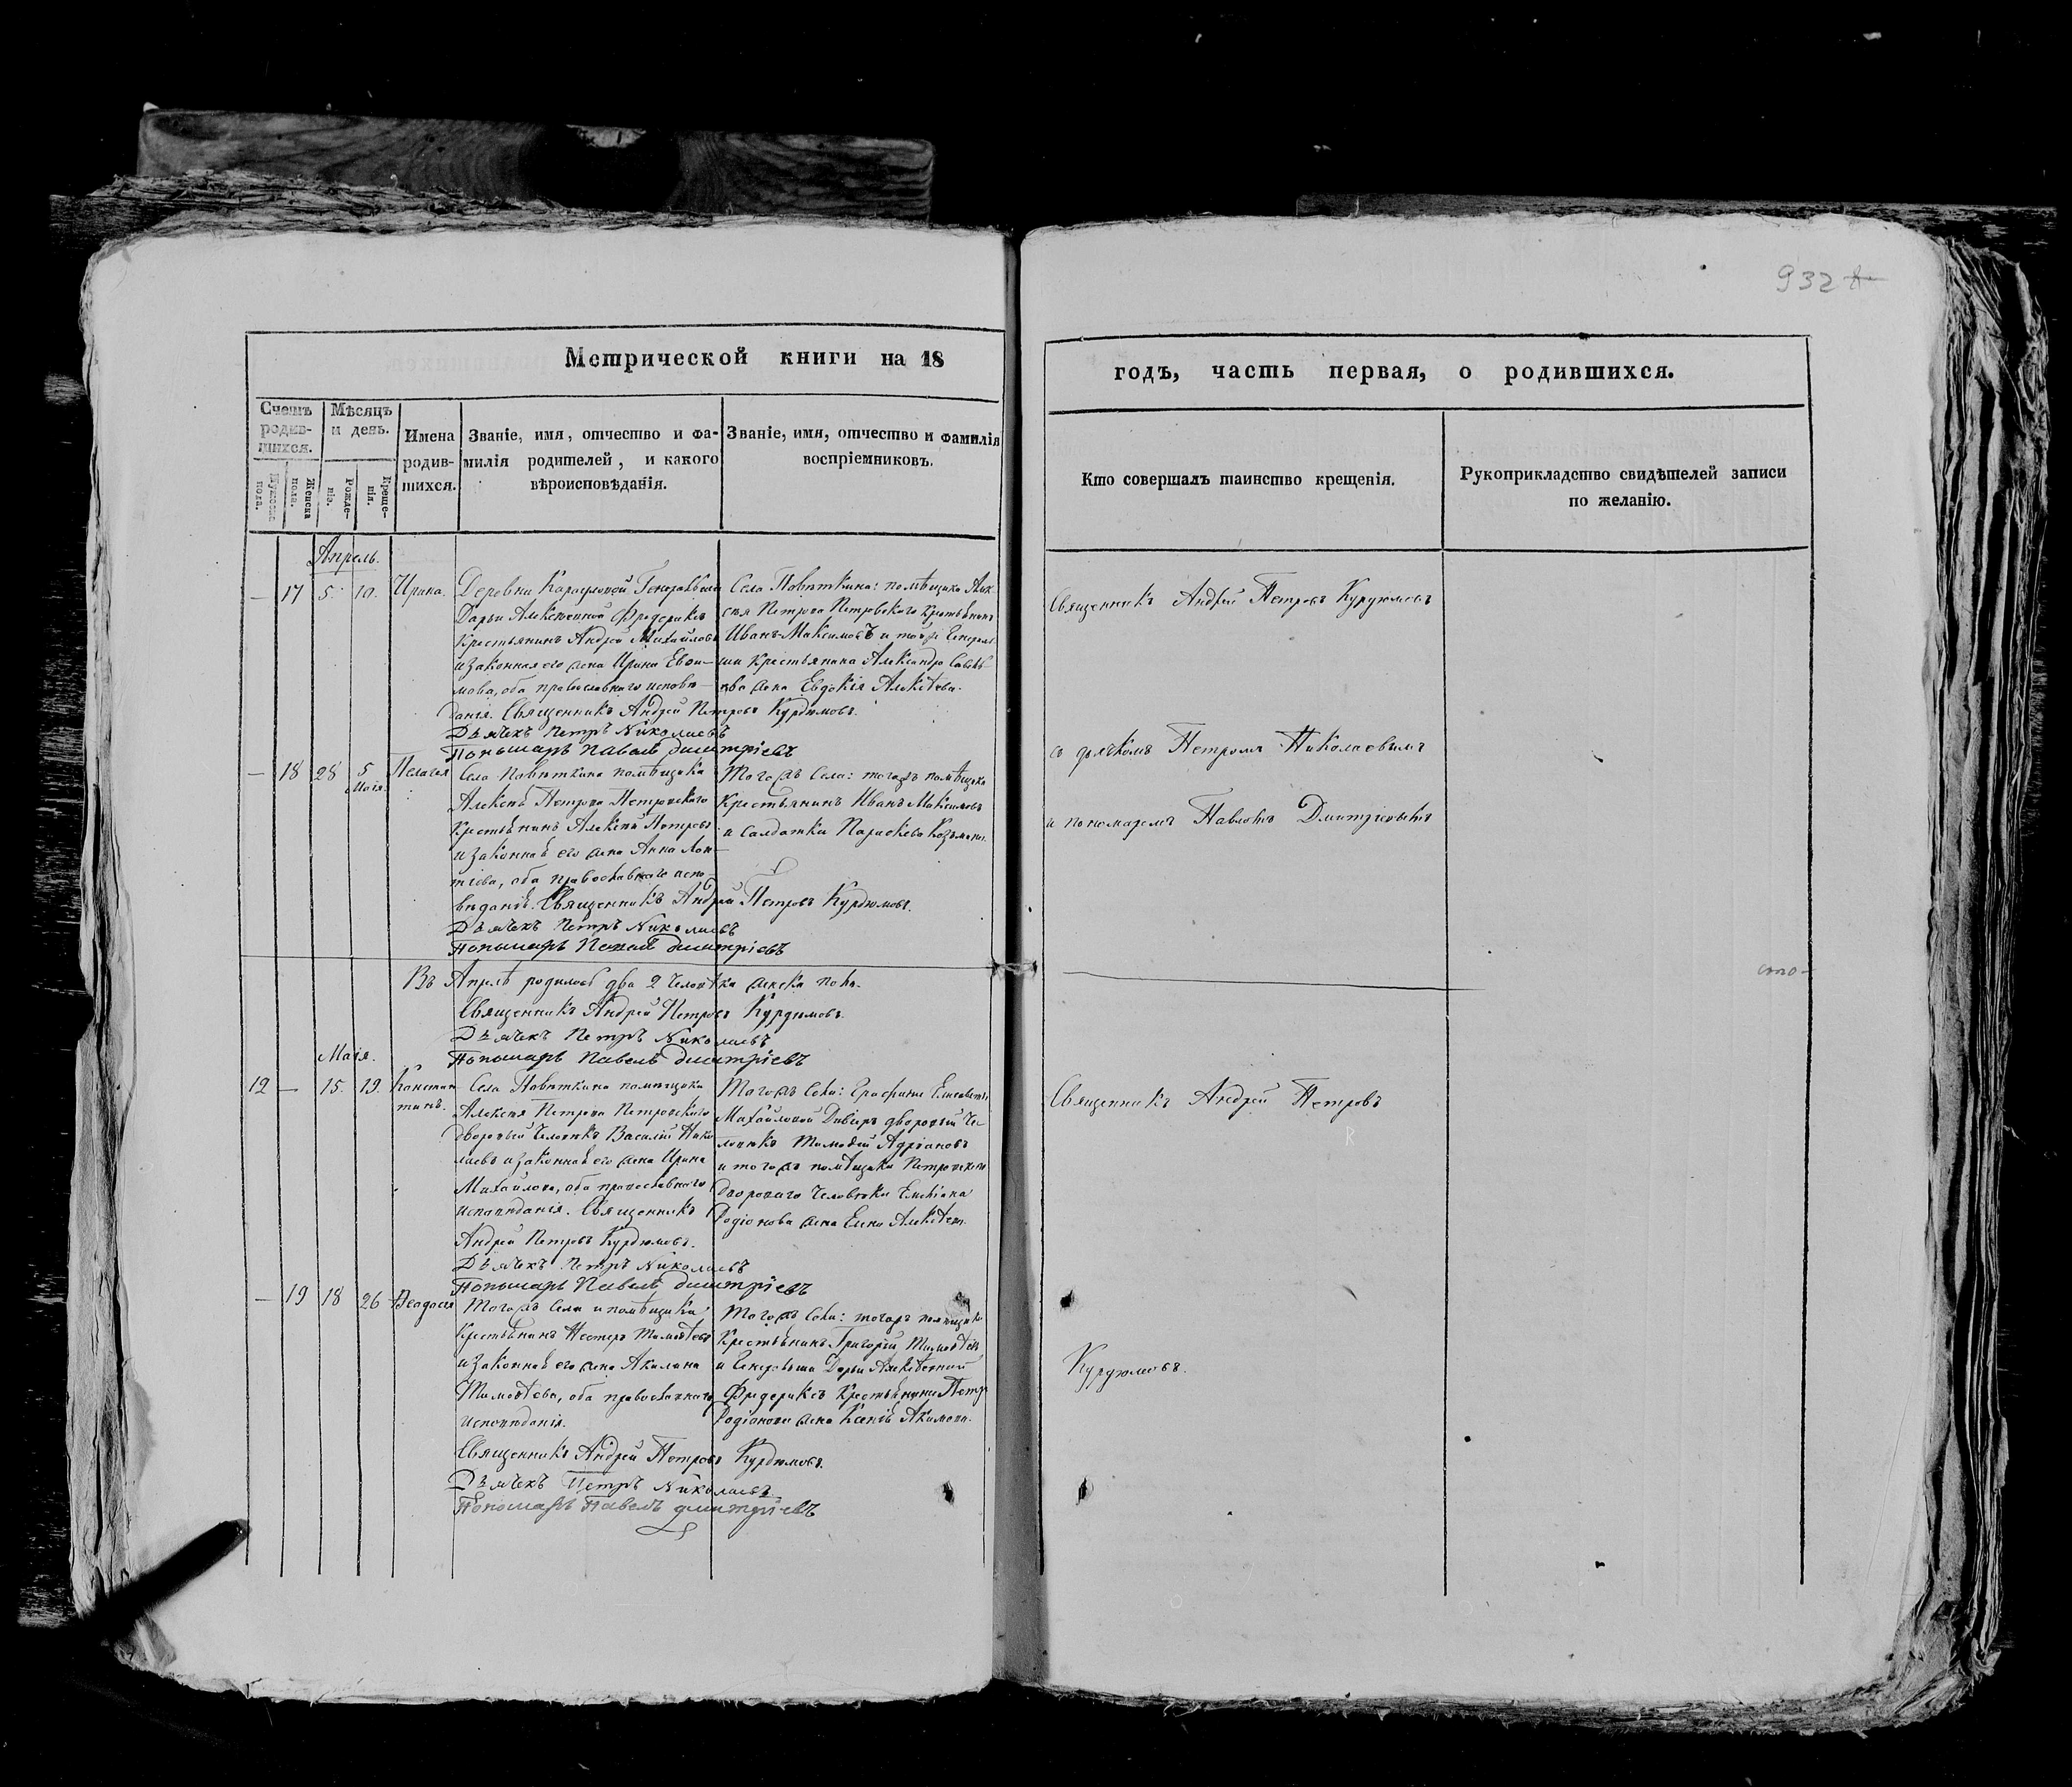 932
Метрической книги на 18
годъ, часть первая, о родившихся.
Счетъ родив-шихся.
Мужеска пола.
Женска пола.
Мѣсяцъ и день.
Рожде-нія.
Креще-нія.
Имена родив-шихся.
Званіе, имя, отчество и фа-
милія родителей, и какого
вѣроисповѣданія.
Званіе, имя, отчество и фамилія
воспріемниковъ.
Кто совершалъ таинство крещенія.
Рукоприкладство свидѣтелей записи
по желанію.
Апрель.
— 17 5. 10. Ирина.
Деревни Генеральши
Дарьи Алексѣевной Фредериксъ
Крестьянинъ Андрей Михайловъ
и законная его жена Ирина Евѳи-
мова, оба православнаго исповѣ-
данія. Священникъ Андрей Петровъ Курдюмовъ.
Дьячекъ Петръ Николаевъ
Пономарь Павелъ Димитріевъ
Села Повѣткина: помѣщика Алек-
сѣя Петрова Петровскаго крестьянинъ
Иванъ Максимовъ и той же Генераль-
ши крестьянина Александра
жена Евдокія Алексѣева.
Священникъ Андрей Петровъ Курдюмовъ
съ дьячкомъ Петромъ Николаевымъ
и пономаремъ Павломъ Дмитріевымъ
— 18 28 5 Маія. Пелагея
Села Повѣткина помѣщика
Алексѣя Петрова Петровскаго
Крестьянинъ Алексѣй Петровъ
и законная его жена Анна Леон-
тіева, оба православнаго испо-
вѣданія. Священникъ Андрей Петровъ Курдюмовъ.
Дьячекъ Петръ Николаевъ
Пономарь Павелъ Димитріевъ
Тогожъ Села: тогожъ помѣщика
Крестьянинъ Иванъ Максимовъ
и Салдатка Параскева Козьмина.
Въ Апрелѣ родилось два 2 человѣка женска пола.
Священникъ Андрей Петровъ Курдюмовъ.
Дьячекъ Петръ Николаевъ
Пономарь Павелъ Димитріевъ
Маія.
12 — 15. 19. Констан-
тинъ.
Села Повѣткина помѣщика
Алексѣя Петрова Петровскаго
дворовый человѣкъ Василій Нико-
лаевъ и законная его жена Ирина
Михайлова, оба православнаго
исповѣданія. Священникъ
Андрей Петровъ Курдюмовъ.
Дьячекъ Петръ Николаевъ
Пономарь Павелъ Димитріевъ
Тогожъ Села: Графини Елисаветы
Михайловой Дивьеръ дворовый че-
ловѣкъ Тимоѳей Адріановъ
и тогожъ помѣщика Петровскаго
двороваго человѣка Емеліана
Родіонова жена Алексѣева.
Священникъ Андрей Петровъ
Курдюмовъ.
— 19 18 26 Ѳеодосія
Тогожъ Села и помѣщика
Крестьянинъ Нестеръ Тимоѳеевъ
и законная его жена Акилина
Тимоѳеева, оба православнаго
исповѣданія.
Священникъ Андрей Петровъ Курдюмовъ.
Дьячекъ Петръ Николаевъ
Пономарь Павелъ Димитріевъ
Тогожъ Села: тогожъ помѣщика
Крестьянинъ Григорій Тимоѳеевъ
и Генеральши Дарьи Алексѣевной
Фредериксъ Крестьянина Петра
Родіонова жена Ксенія Акимова.
сто-